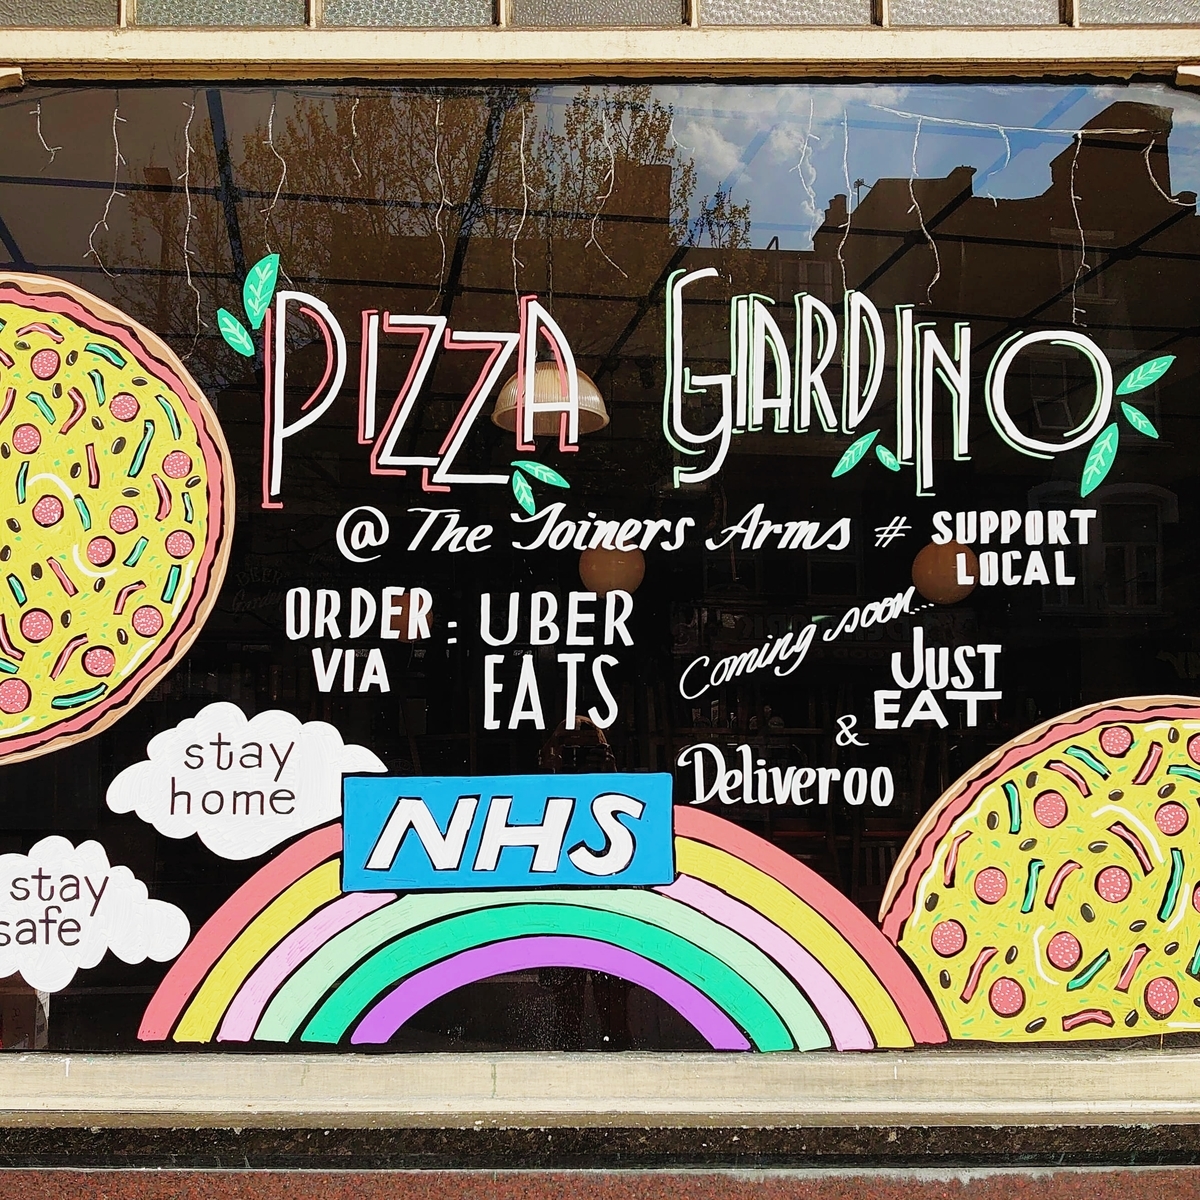 PIZZA GIARDINO
@ The Joiners Arms # SUPPORT LOCAL
ORDER VIA : UBER EATS
Coming soon...
JUST EAT
&
Deliveroo
stay
home
NHS
stay
safe